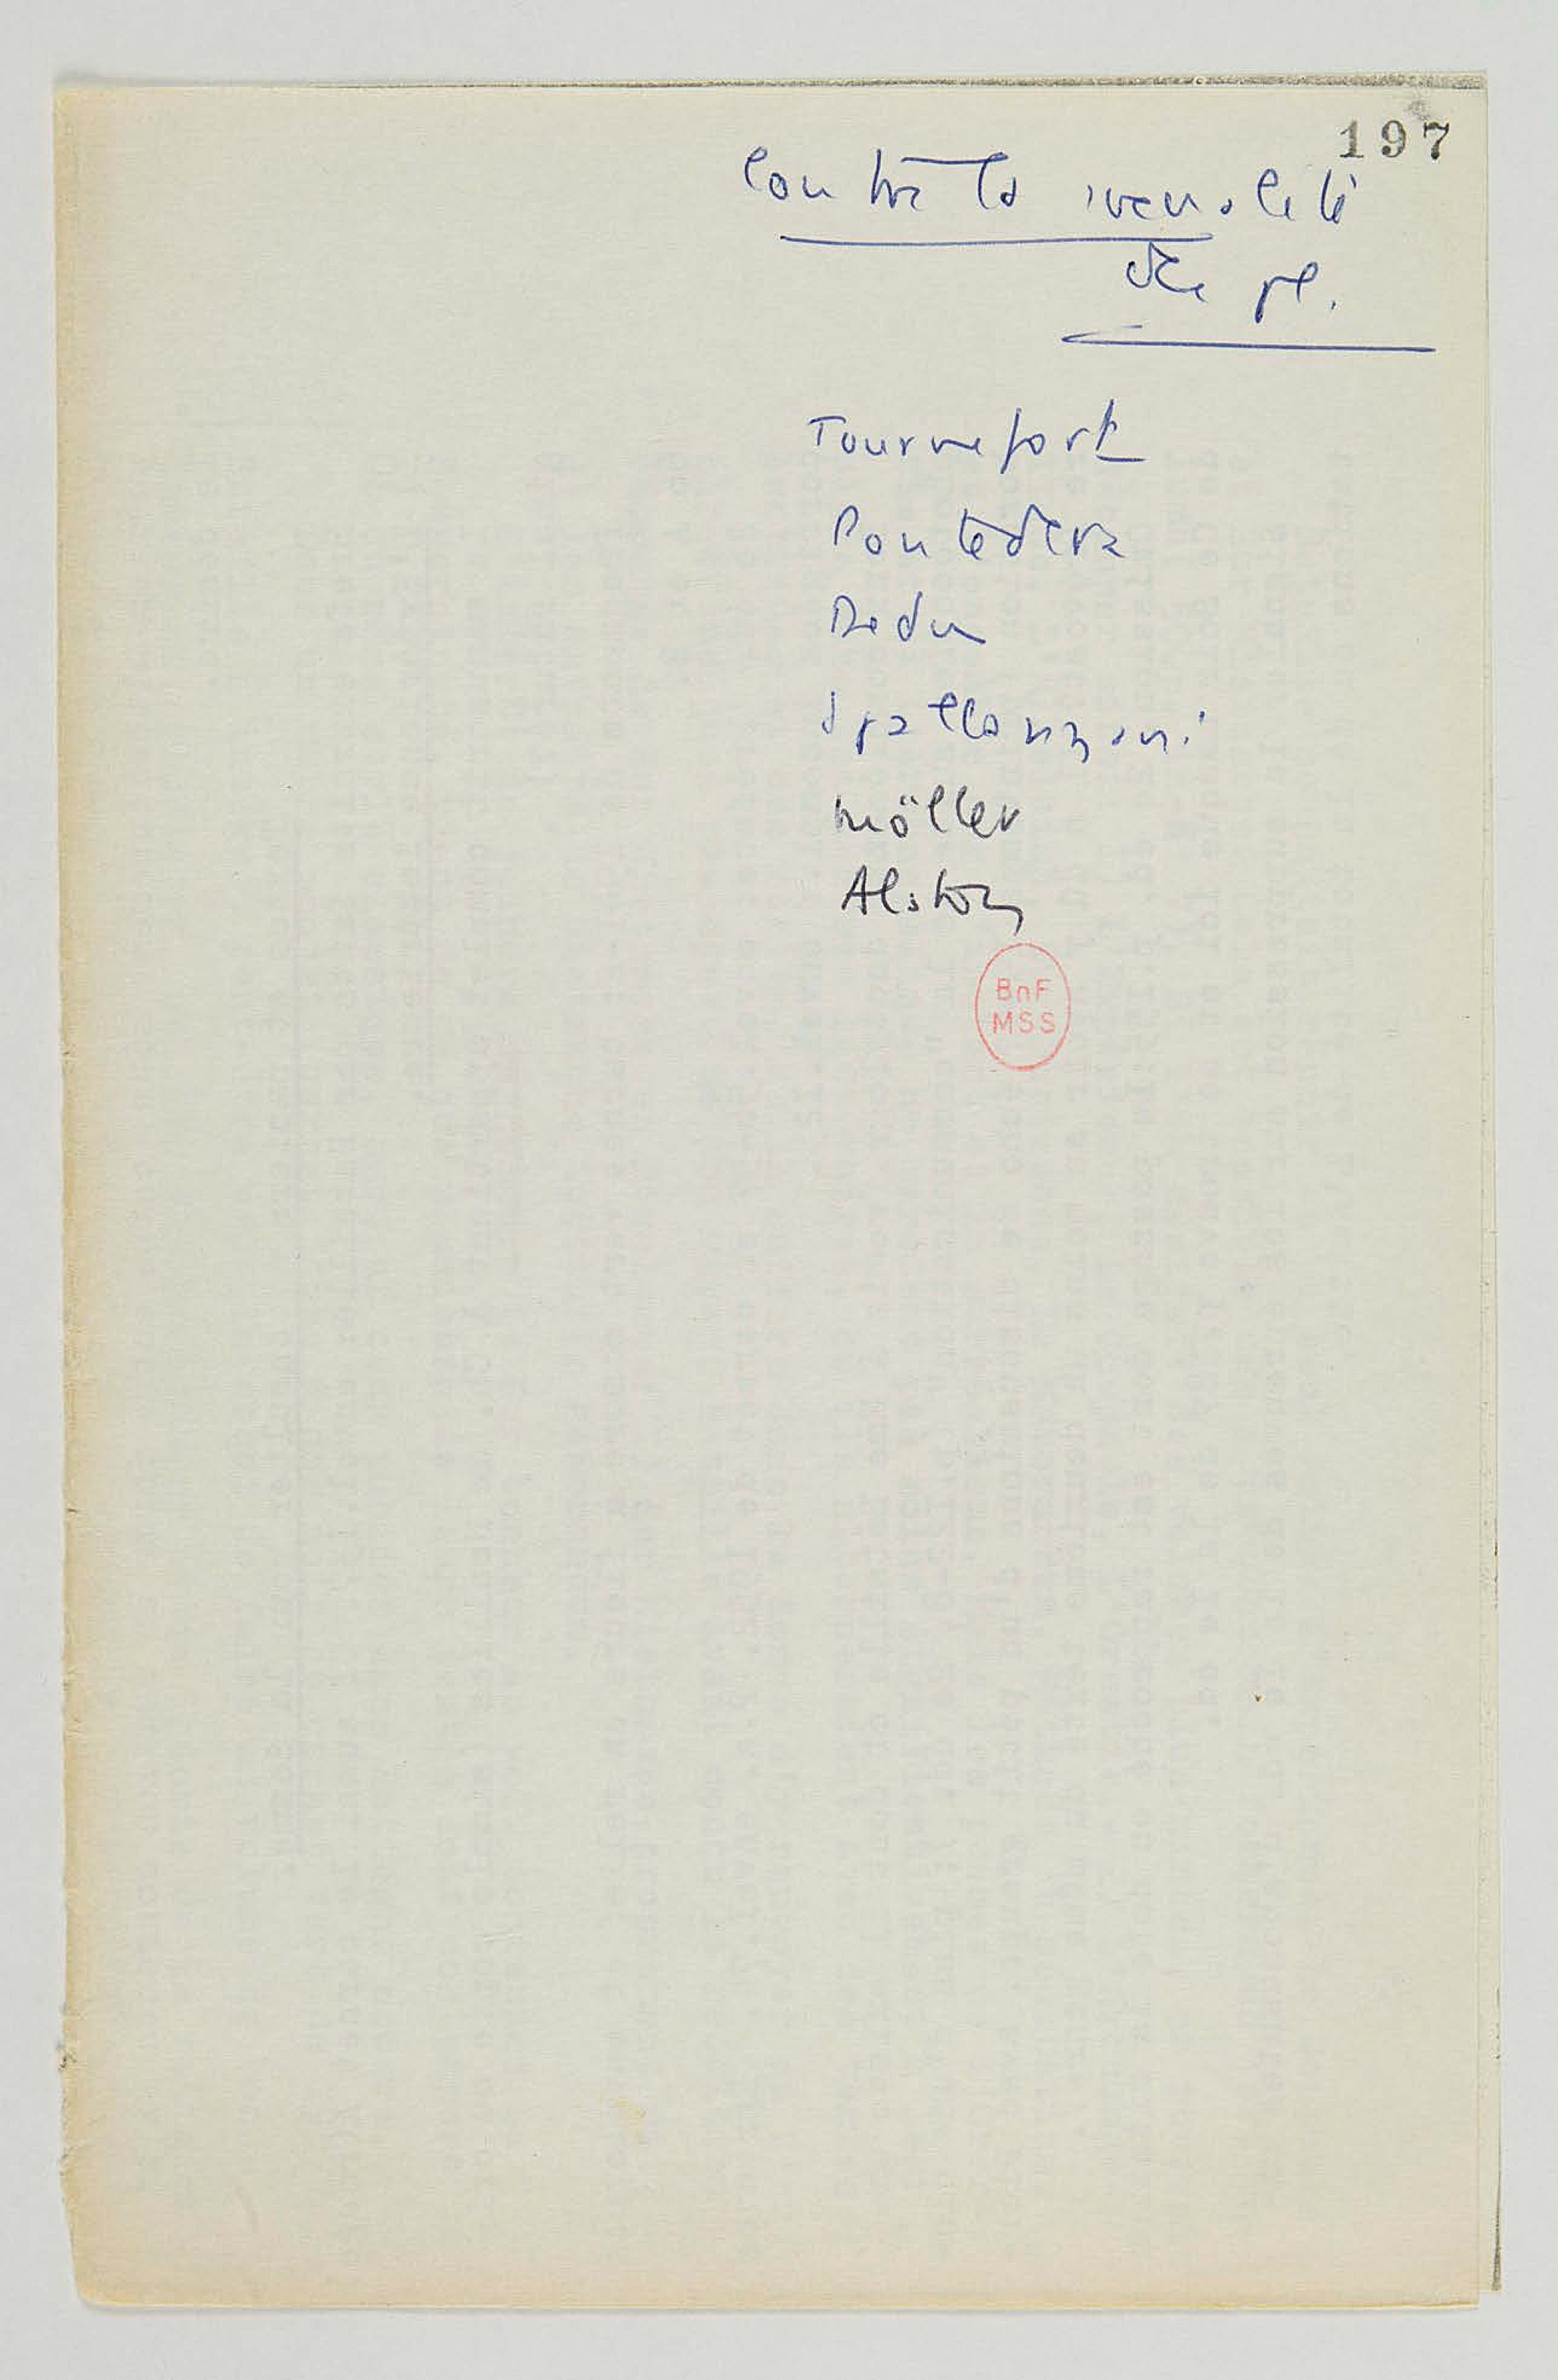 197
Contre la sexualité
des pl.
Tournefort
Pontedera
Dedu
Spallanzani
Möller
Alston
BnF
MSS